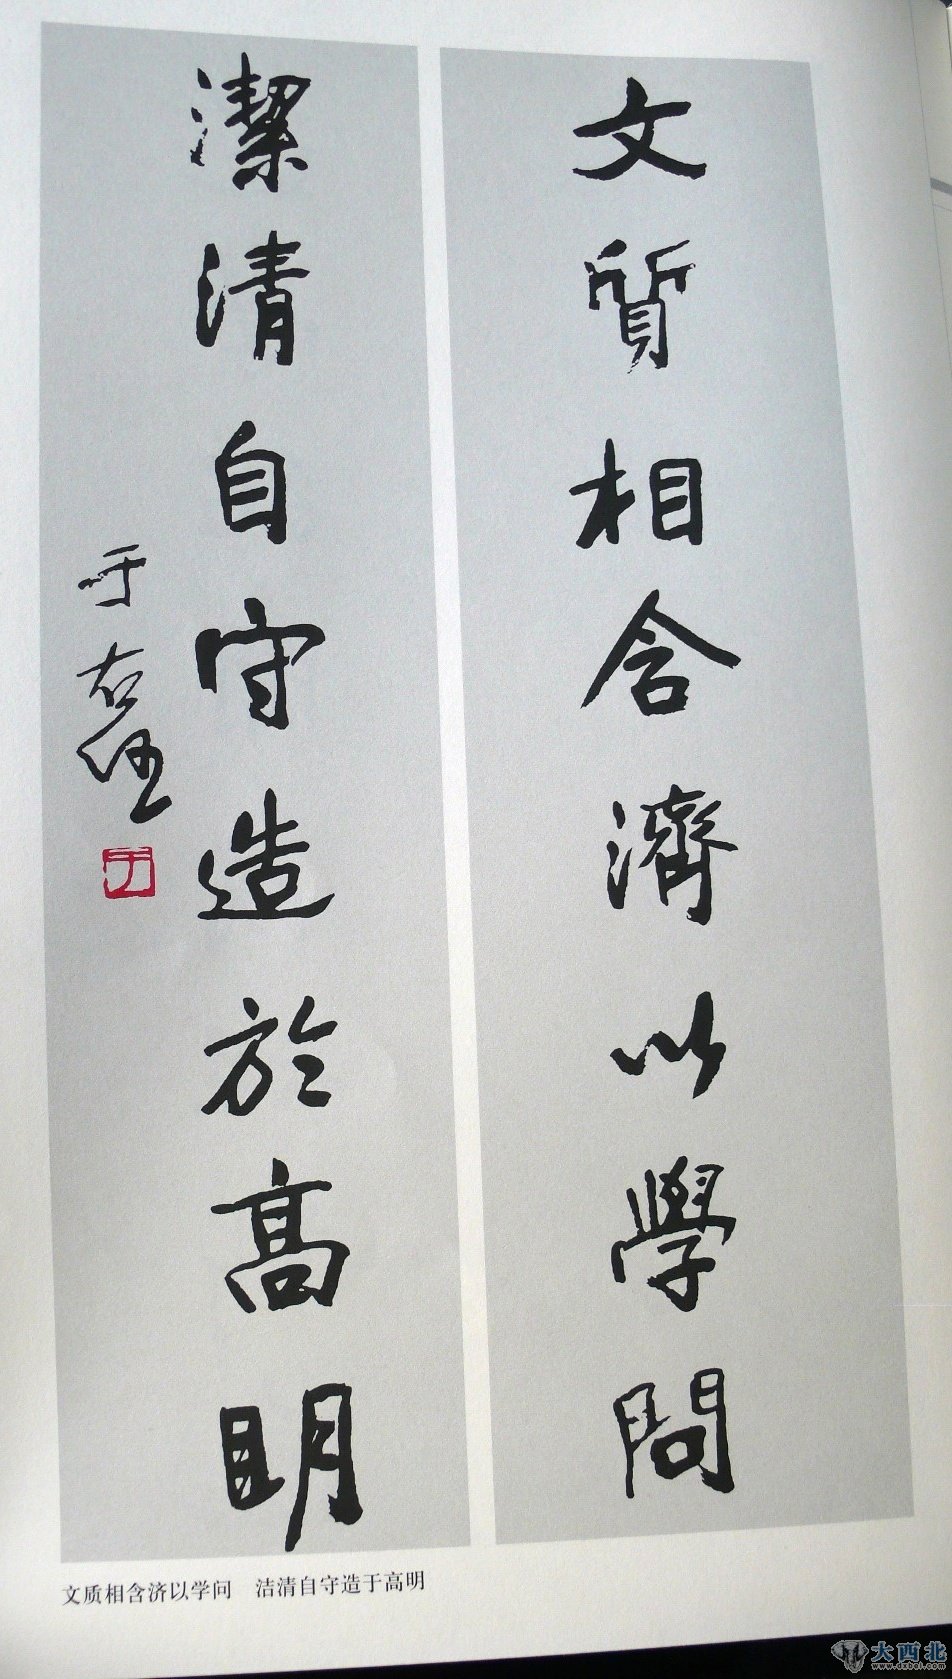 文質相含濟以學問
潔清自守造於高明
于右任
文质相含济以学问　洁清自守造于高明
大西北
www.dxbei.com